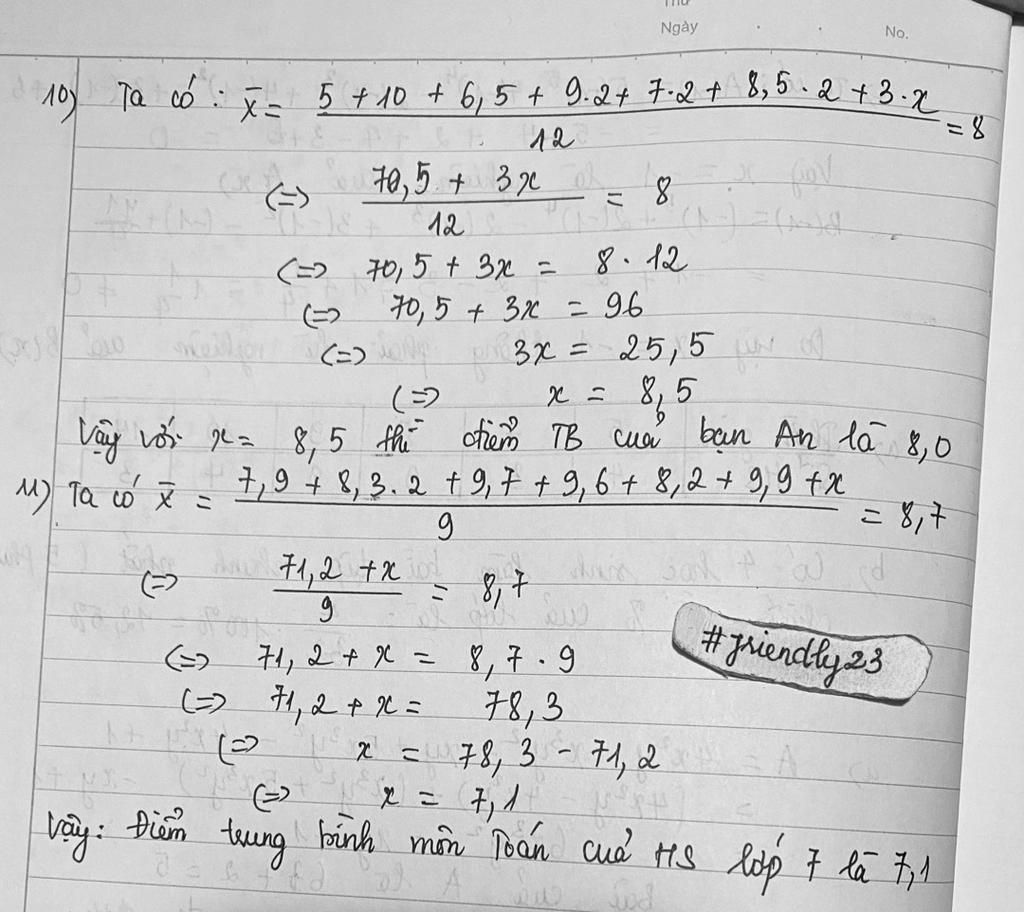 Thứ
Ngày . . No.
10) Ta có : x̄ = (5 + 10 + 6,5 + 9.2 + 7.2 + 8,5.2 + 3.x)/12 = 8
(=) (70,5 + 3x)/12 = 8
(=) 70,5 + 3x = 8 . 12
(=) 70,5 + 3x = 96
(=) 3x = 25,5
(=) x = 8,5
Vậy với x = 8,5 thì điểm TB cuả bạn An là 8,0
11) Ta có x̄ = (7,9 + 8,3.2 + 9,7 + 9,6 + 8,2 + 9,9 + x)/9 = 8,7
(=) (71,2 + x)/9 = 8,7
(=) 71,2 + x = 8,7 . 9
(=) 71,2 + x = 78,3
(=) x = 78,3 - 71,2
(=) x = 7,1
Vậy: Điểm trung bình môn Toán cuả HS lớp 7 là 7,1
#friendly23